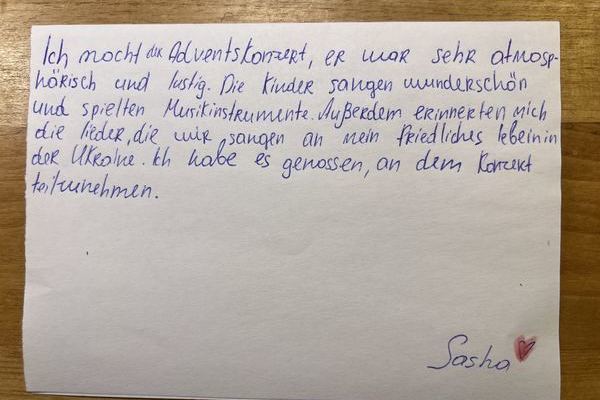 Ich mocht der Adventskonzert, er war sehr atmosp-
härisch und lustig. Die Kinder sangen wunderschön
und spielten Musikinstrumente. Außerdem erinnerten mich
die lieder, die wir sangen an mein friedliches leben in
der Ukraine. Ich habe es genossen, an dem Konzert
teitzunehmen.
Sasha